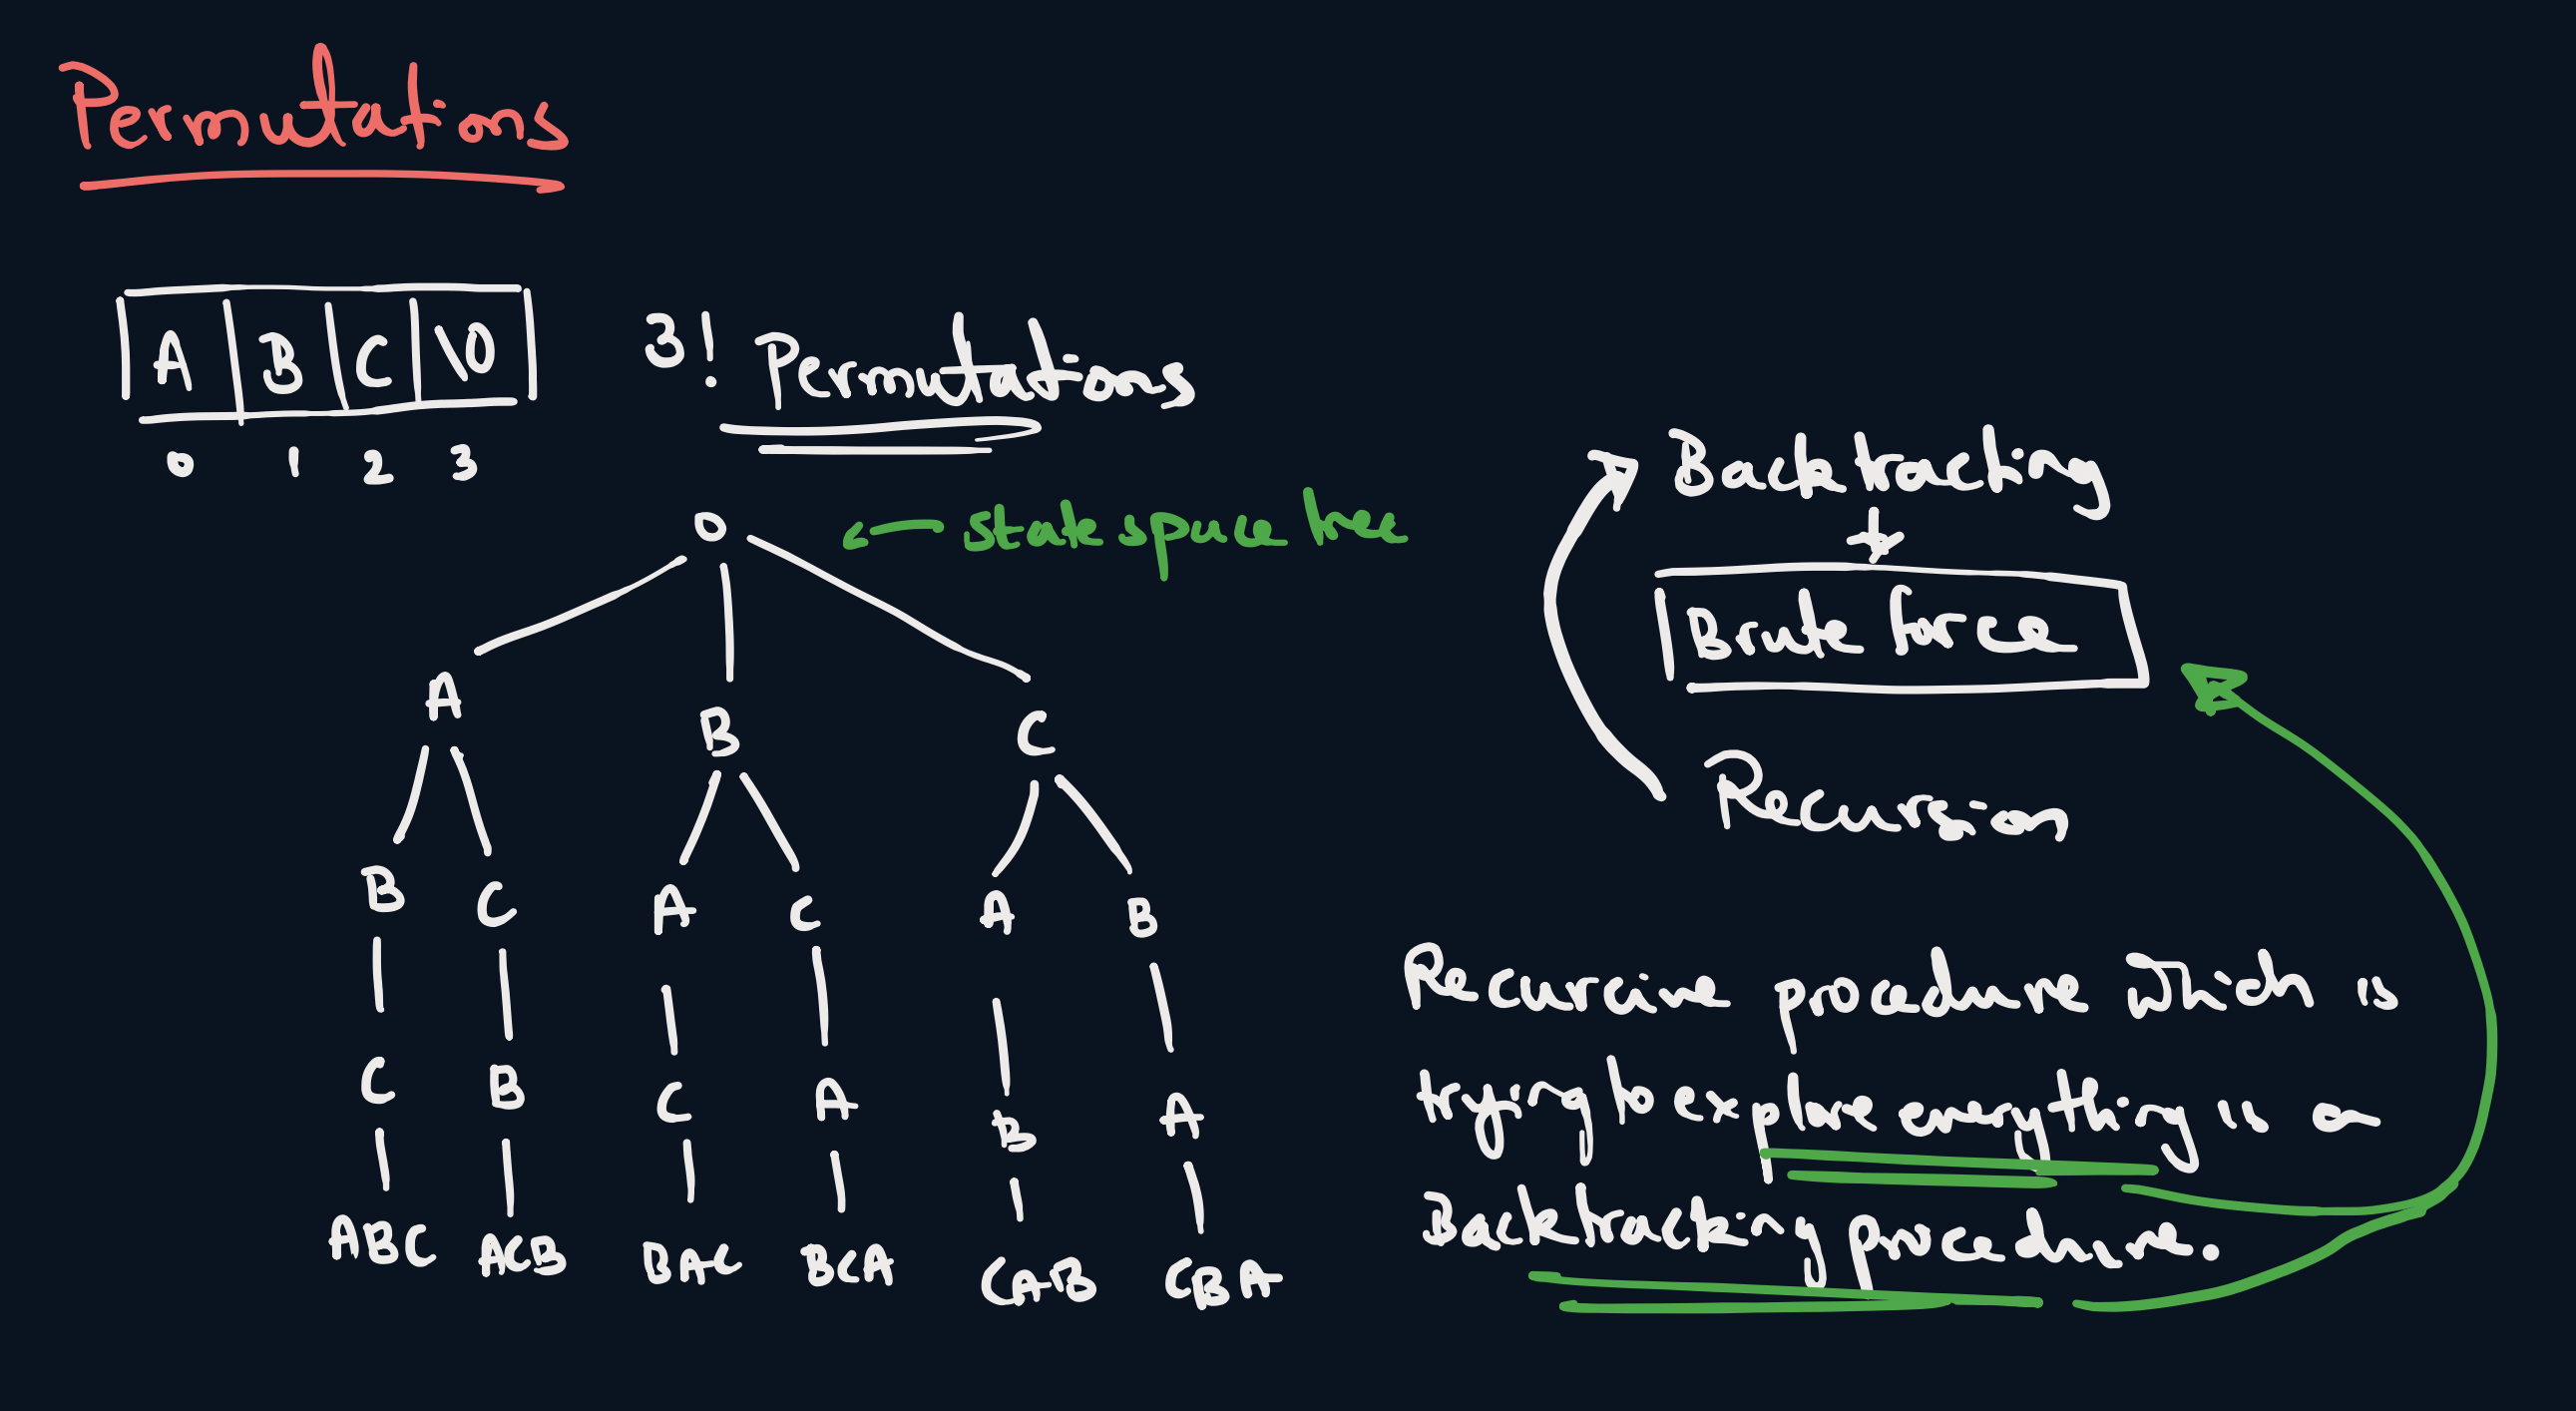 Permutations
A B C \0
0 1 2 3
3! Permutations
0
← state space tree
A B C
B C A C A B
C B C A B A
ABC ACB BAC BCA CAB CBA
Backtracking
Brute force
Recursion
Recurcive procedure which is
trying to explore everything is a
Backtracking procedure.